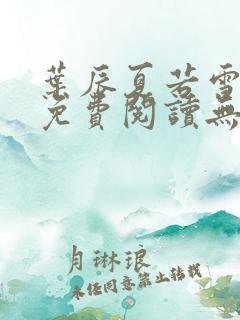 葉辰夏若雪
免費閱讀無
月琳琅
未经同意禁止转载